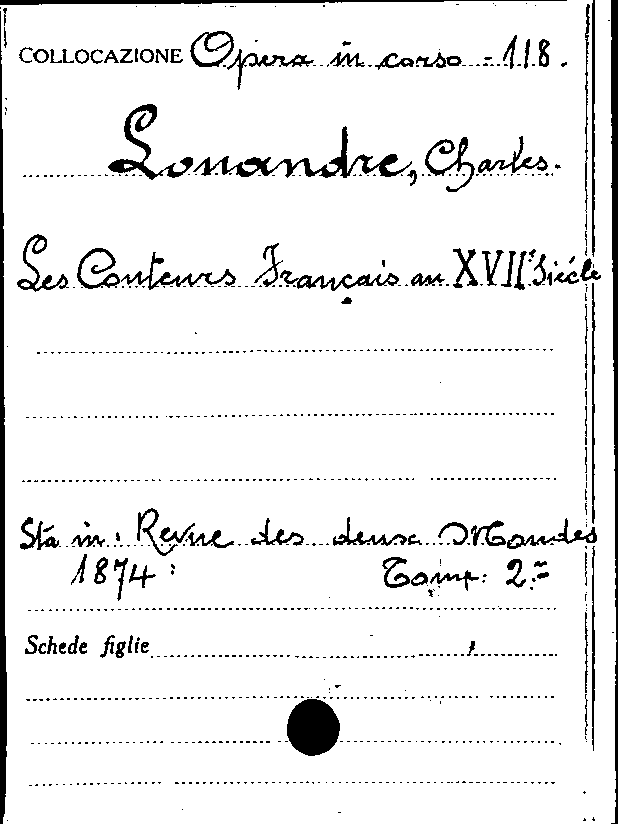 COLLOCAZIONE Opera in corso - 118.
Louandre, Charles.
Les Conteurs Français au XVIIe Siécle
Sta in: Revue des deux Mondes
1874: Tom: 2.=
Schede figlie